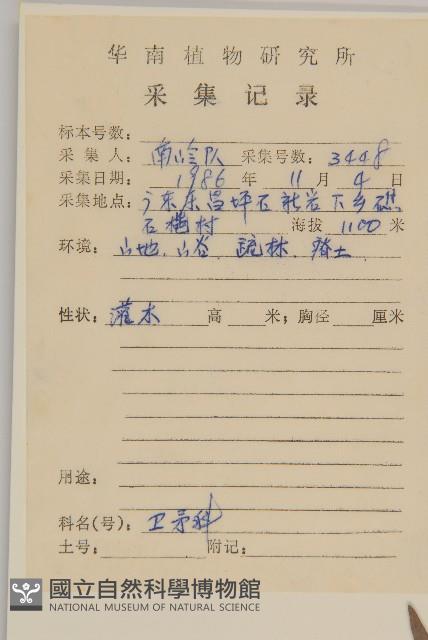 华南植物研究所
采集记录
标本号数:
采集人: 南岭队 采集号数: 3448
采集日期: 1986 年 11 月 4 日
采集地点: 广东乐昌坪石
石 村 海拔 1100 米
环境: 山地、山谷、疏林、瘠土
性状: 灌木 高 米; 胸径 厘米
用途:
科名(号): 卫矛科
土号: 附记:
國立自然科學博物館
NATIONAL MUSEUM OF NATURAL SCIENCE